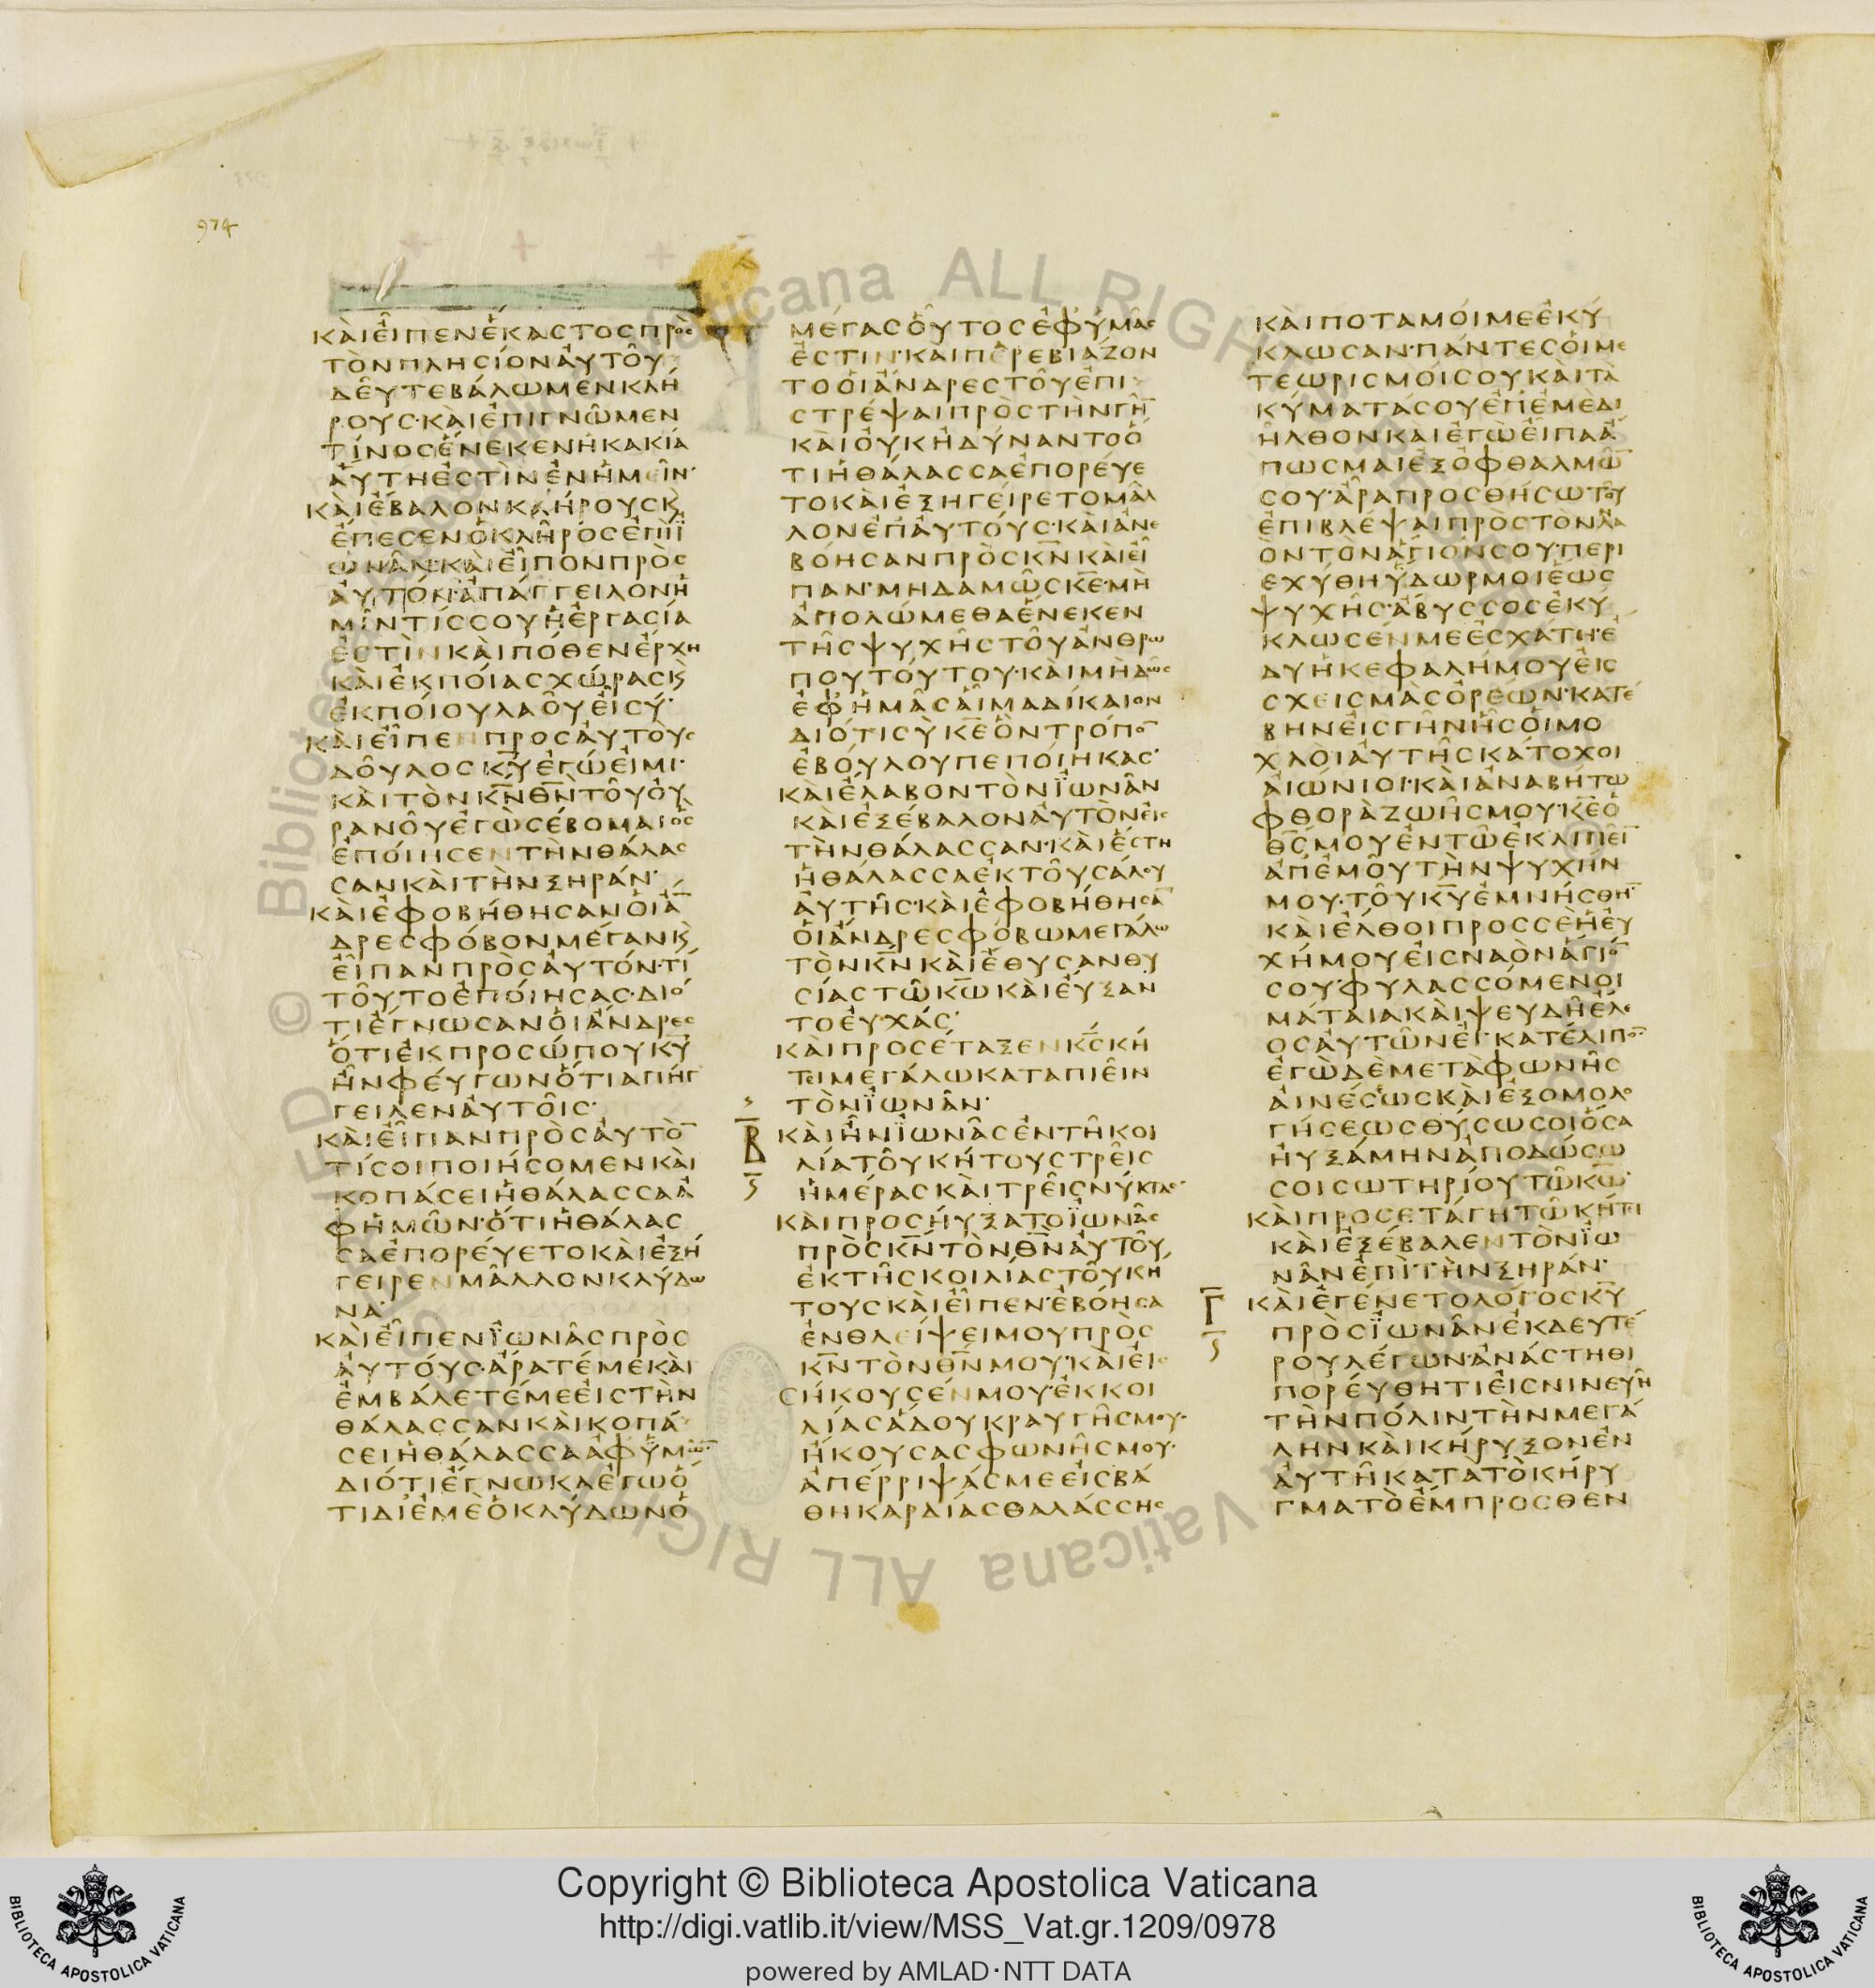 974
ΚΑῚΕἾΠΕΝἝΚΑΣΤΟΣΠΡῸΣ
ΤῸΝΠΛΗΣΊΟΝΑΥ̓ΤΟΥ͂
ΔΕΥ͂ΤΕΒΆΛΩΜΕΝΚΛΉ
ΡΟΥΣ·ΚΑῚἘΠΙΓΝΩ͂ΜΕΝ
ΤΊΝΟΣἝΝΕΚΕΝἩΚΑΚΊΑ
ΑὝΤΗἘΣΤῚΝἘΝἩΜΕΙ͂Ν·
ΚΑῚἜΒΑΛΟΝΚΛΉΡΟΥΣΚ̣
ἜΠΕΣΕΝὉΚΛΗ͂ΡΟΣἘΠΪΪ
ΩΝΑ͂Ν·ΚΑῚΕἾΠΟΝΠΡῸΣ
ΑΥ̓ΤΌΝ·ἈΠΆΓΓΕΙΛΟΝἩ
ΜΙ͂ΝΤΊΣΣΟΥἩἘΡΓΑΣΊΑ
ἘΣΤῚΝΚΑῚΠΌΘΕΝἜΡΧΗ
ΚΑῚἘΚΠΟΊΑΣΧΏΡΑΣΚ̣
ἘΚΠΟΊΟΥΛΑΟΥ͂ΕἸΣΎ·
ΚΑῚΕἾΠΕΝΠΡΟΣΑΥ̓ΤΟῪΣ
ΔΟΥ͂ΛΟΣΚ̅Υ̅ἘΓΏΕἸΜΙ·
ΚΑῚΤῸΝΚ̅Ν̅Θ̅Ν̅ΤΟΥ͂ΟΥ̓
ΡΑΝΟΥ͂ἘΓῺΣΈΒΟΜΑΙὋΣ
ἘΠΟΊΗΣΕΝΤῊΝΘΆΛΑΣ
ΣΑΝΚΑῚΤῊΝΞΗΡΆΝ·
ΚΑῚἘΦΟΒΉΘΗΣΑΝΟἹἈ̅
ΔΡΕΣΦΌΒΟΝΜΈΓΑΝΚ̣
ΕἾΠΑΝΠΡῸΣΑΥ̓ΤΌΝ·ΤΊ
ΤΟΥ͂ΤΟἘΠΟΊΗΣΑΣ·ΔΙΌ
ΤΙἜΓΝΩΣΑΝΟἹἌΝΔΡΕΣ
ὍΤΙἘΚΠΡΟΣΏΠΟΥΚ̅Υ̅
ἮΝΦΕΎΓΩΝὍΤΙΑΠΉΓ
ΓΕΙΛΕΝΑΥ̓ΤΟΙ͂Σ·
ΚΑῚΕἾΠΑΝΠΡῸΣΑΥ̓ΤΌ̅
ΤΊΣΟΙΠΟΙΉΣΟΜΕΝΚΑῚ
ΚΟΠΆΣΕΙἩΘΆΛΑΣΣΑἈ
ΦἩΜΩ͂Ν·ὍΤΙἩΘΆΛΑΣ
ΣΑἘΠΟΡΕΎΕΤΟΚΑῚἘΞΉ
ΓΕΙΡΕΝΜΑ͂ΛΛΟΝΚΛΎΔΩ
ΝΑ·
ΚΑῚΕἾΠΕΝΪΩΝΑ͂ΣΠΡῸΣ
ΑΥ̓ΤΟΎΣ·ἌΡΑΤΈΜΕΚΑῚ
ἘΜΒΆΛΕΤΈΜΕΕἸΣΤῊΝ
ΘΆΛΑΣΣΑΝΚΑῚΚΟΠΆ
ΣΕΙἩΘΆΛΑΣΣΑἈΦὙΜΩ͂
ΔΙΌΤΙἜΓΝΩΚΑἘΓΩὍ
ΤΙΔΙἘΜῈὉΚΛΎΔΩΝὉ
ΜΈΓΑΣΟὟΤΟΣἘΦὙΜΑ͂Σ
ἘΣΤΙΝ·ΚΑΙΠΑΡΕΒΙΆΖΟΝ
ΤΟΟἹἌΝΔΡΕΣΤΟΥ͂ἘΠΙ
ΣΤΡΈΨΑΙΠΡῸΣΤῊΝΓΗ̅
ΚΑῚΟΥ̓ΚἨΔΎΝΑΝΤΟὍ
ΤΙἩΘΆΛΑΣΣΑἘΠΟΡΕΎΕ
ΤΟΚΑῚἘΞΗΓΕΊΡΕΤΟΜΑ͂Λ
ΛΟΝἘΠΑΥ̓ΤΟΎΣ·ΚΑῚἈΝΕ
ΒΌΗΣΑΝΠΡῸΣΚ̅Ν̅ΚΑῚΕἾ
ΠΑΝ·ΜΗΔΑΜΩ͂ΣΚ̅Ε̅·ΜῊ
ἈΠΟΛΏΜΕΘΑἝΝΕΚΕΝ
ΤΗ͂ΣΨΥΧΗ͂ΣΤΟΥ͂ἈΝΘΡΩ
ΠΟΥΤΟΎΤΟΥ·ΚΑῚΜῊΔΩ͂Σ
ἘΦἩΜΑ͂ΣΑἾΜΑΔΊΚΑΙΟΝ
ΔΙΌΤΙΣῪΚ̅Ε̅ὋΝΤΡΌΠΟ̅
ἘΒΟΎΛΟΥΠΕΠΟΊΗΚΑΣ·
ΚΑῚἜΛΑΒΟΝΤῸΝΪΩΝΑ͂Ν
ΚΑῚἘΞΈΒΑΛΟΝΑΥ̓ΤῸΝΕΙΣ
ΤῊΝΘΆΛΑΣΣΑΝ·ΚΑῚἜΣΤΗ
ἩΘΆΛΑΣΣΑἘΚΤΟΥ͂ΣΆΛΟΥ
ΑΥ̓ΤΗ͂Σ·ΚΑῚἘΦΟΒΉΘΗΣΑ̅
ΟἹἌΝΔΡΕΣΦΌΒΩΜΕΓΆΛΩ
ΤῸΝΚ̅Ν̅ΚΑῚἜΘΥΣΑΝΘΥ
ΣΊΑΣΤΩ͂Κ̅Ω̅ΚΑῚΕΥ̓́ΞΑΝ
ΤΟΕΥ̓ΧΆΣ·
ΚΑῚΠΡΟΣΈΤΑΞΕΝΚ̅Σ̅ΚΉ
ΤΕΙΜΕΓΆΛΩΚΑΤΑΠΙΕΙ͂Ν
ΤῸΝΪΩΝΑ͂Ν·
Β̅
ΚΑῚἮΝΪΩΝΑ͂ΣἘΝΤΗ͂ΚΟΙ
ΛΊΑΤΟΥ͂ΚΉΤΟΥΣΤΡΕΙ͂Σ
ἩΜΈΡΑΣΚΑῚΤΡΕΙ͂ΣΝΎΚΤΑΣ·
ΚΑῚΠΡΟΣΗΎΞΑΤΟΪΩΝΑ͂Σ
ΠΡῸΣΚ̅Ν̅ΤῸΝΘ̅Ν̅ΑΥ̓ΤΟΥ͂
ἘΚΤΗ͂ΣΚΟΙΛΊΑΣΤΟΥ͂ΚΉ
ΤΟΥΣΚΑῚΕἾΠΕΝ·ἘΒΌΗΣΑ
ἘΝΘΛΕΊΨΕΙΜΟΥΠΡῸΣ
Κ̅Ν̅ΤῸΝΘ̅Ν̅ΜΟΥ·ΚΑῚΕἸΣ
ΣΉΚΟΥΣΈΝΜΟΥ·ἘΚΚΟΙ
ΛΊΑΣἍΔΟΥΚΡΑΥΓΗ͂ΣΜΟΥ·
ἬΚΟΥΣΑΣΦΩΝΗ͂ΣΜΟΥ·
ἈΠΈΡΡΙΨΆΣΜΕΕἸΣΒΆ
ΘΗΚΑΡΔΊΑΣΘΑΛΆΣΣΗΣ
ΚΑῚΠΟΤΑΜΟΊΜΕἘΚΎ
ΚΛΩΣΑΝ·ΠΆΝΤΕΣΟἹΜΕ
ΤΕΩΡΙΣΜΟΊΣΟΥΚΑῚΤᾺ
ΚΎΜΑΤΆΣΟΥἘΠἘΜῈΔΙ
ΗΛΘΟΝΚΑῚἘΓῺΕἾΠΑἈ
ΠΩΣΜΑΙἘΞὈΦΘΑΛΜΩ̅
ΣΟΥ·ἎΡΑΠΡΟΣΘΉΣΩΤΟΥ͂
ἘΠΙΒΛΈΨΑΙΠΡῸΣΤῸΝΛΑ
ῸΝΤῸΝἍΓΙΌΝΣΟΥ·ΠΕΡΙ
ΕΧΎΘΗὝΔΩΡΜΟΙἝΩΣ
ΨΥΧΗ͂Σ·ἌΒΥΣΣΟΣἘΚΎ
ΚΛΩΣΈΝΜΕἘΣΧΆΤΗ·Ἔ
ΔΥἩΚΕΦΑΛΉΜΟΥΕἸΣ
ΣΧΕΙΣΜᾺΣὈΡΕΩΝ·ΚΑΤΈ
ΒΗΝΕἸΣΓΗ͂ΝἯΣΟἹΜΟ
ΧΛΟῚΑΥ̓ΤΗ͂ΣΚΆΤΟΧΟΙ
ΑἸΏΝΙΟΙ·ΚΑῚἈΝΑΒΉΤΩ
ΦΘΟΡᾺΖΩΗ͂ΣΜΟΥ·Κ̅Ε̅Ὁ
Θ̅Σ̅ΜΟΥἘΝΤΩ͂ἘΚΛΙΠΕΙ̅
ἈΠἘΜΟΥ͂ΤῊΝΨΥΧΉΝ
ΜΟΥ·ΤΟΥ͂Κ̅Υ̅ἘΜΝΉΣΘΗ̅
ΚΑῚἜΛΘΟΙΠΡΟΣΣῈἩΕΥ̓
ΧΉΜΟΥΕἸΣΝΑῸΝἍΓΙΟ̅
ΣΟΥ·ΦΥΛΑΣΣΌΜΕΝΟΙ
ΜΆΤΑΙΑΚΑῚΨΕΥΔΗ͂ἜΛΕ
ΟΣΑΥ̓ΤΩ͂ΝἘΓΚΑΤΈΛΙΠΟ̅
ἘΓῺΔῈΜΕΤᾺΦΩΝΗ͂Σ
ΑἸΝΈΣΕΩΣΚΑῚἘΞΟΜΟΛΟ
ΓΉΣΕΩΣΘΎΣΩΣΟΙὍΣΑ
ΗΥ̓ΞΆΜΗΝἈΠΟΔΏΣΩ
ΣΟΙΣΩΤΗΡΊΟΥΤΩ͂Κ̅Ω̅·
ΚΑῚΠΡΟΣΕΤΆΓΗΤΩ͂ΚΉΤΕΙ
ΚΑῚἘΞΈΒΑΛΕΝΤῸΝΪΩ
ΝΑ͂ΝἘΠῚΤῊΝΞΗΡΆΝ·
Γ̅
ΚΑῚἘΓΈΝΕΤΟΛΌΓΟΣΚ̅Υ̅
ΠΡῸΣΪΩΝΑ͂ΝἘΚΔΕΥΤΈ
ΡΟΥΛΈΓΩΝ·ἈΝΆΣΤΗΘΙ
ΠΟΡΕΎΘΗΤΙΕἸΣΝΙΝΕΥΗ͂
ΤῊΝΠΌΛΙΝΤῊΝΜΕΓΆ
ΛΗΝΚΑῚΚΉΡΥΞΟΝἘΝ
ΑΥ̓ΤΗ͂ΚΑΤΑΤῸΚΉΡΥ
ΓΜΑΤῸἜΜΠΡΟΣΘΕΝ
© Biblioteca Apostolica Vaticana ALL RIGHTS RESERVED
Copyright © Biblioteca Apostolica Vaticana
http://digi.vatlib.it/view/MSS_Vat.gr.1209/0978
powered by AMLAD·NTT DATA
BIBLIOTECA APOSTOLICA VATICANA
BIBLIOTECA APOSTOLICA VATICANA